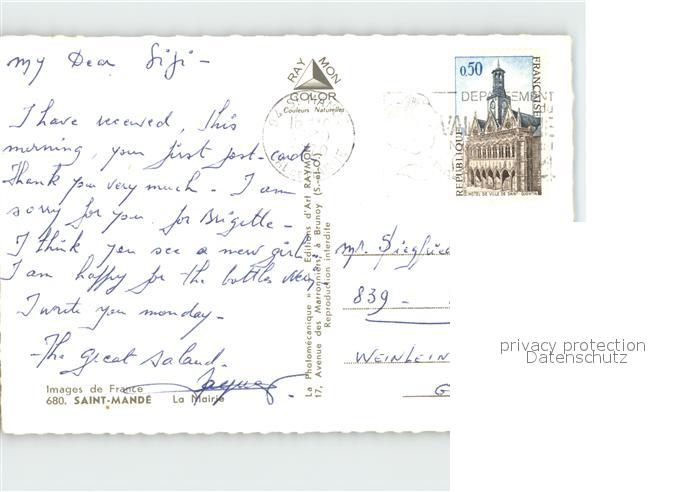 My Dear Sisi -
I have received, this
morning, your first post-card
Thank you very much - I am
sorry for you for Brigitte -
I think you see a new girl
I am happy for the bottles
I write you monday -
- The great salaud -
Jacques
Images de France
680. SAINT-MANDÉ La Mairie
RAY MON
COLOR
Couleurs Naturelles
La Photomécanique » Editions d'Art RAYMON
17, Avenue des Marronniers, à Brunoy (S.-et-O.)
Reproduction interdite
DEPARTEMENT
0,50
REPUBLIQUE
FRANÇAISE
HOTEL DE VILLE DE SAINT QUENTIN
Mr. Siegfried
839 -
WEINLEIN
G
privacy protection
Datenschutz